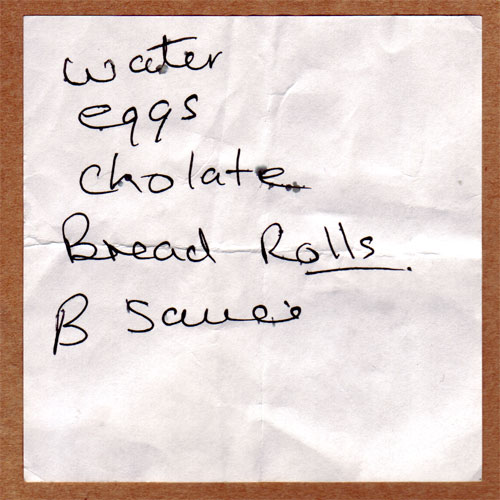 water
eggs
cholate
Bread Rolls.
B Sauce